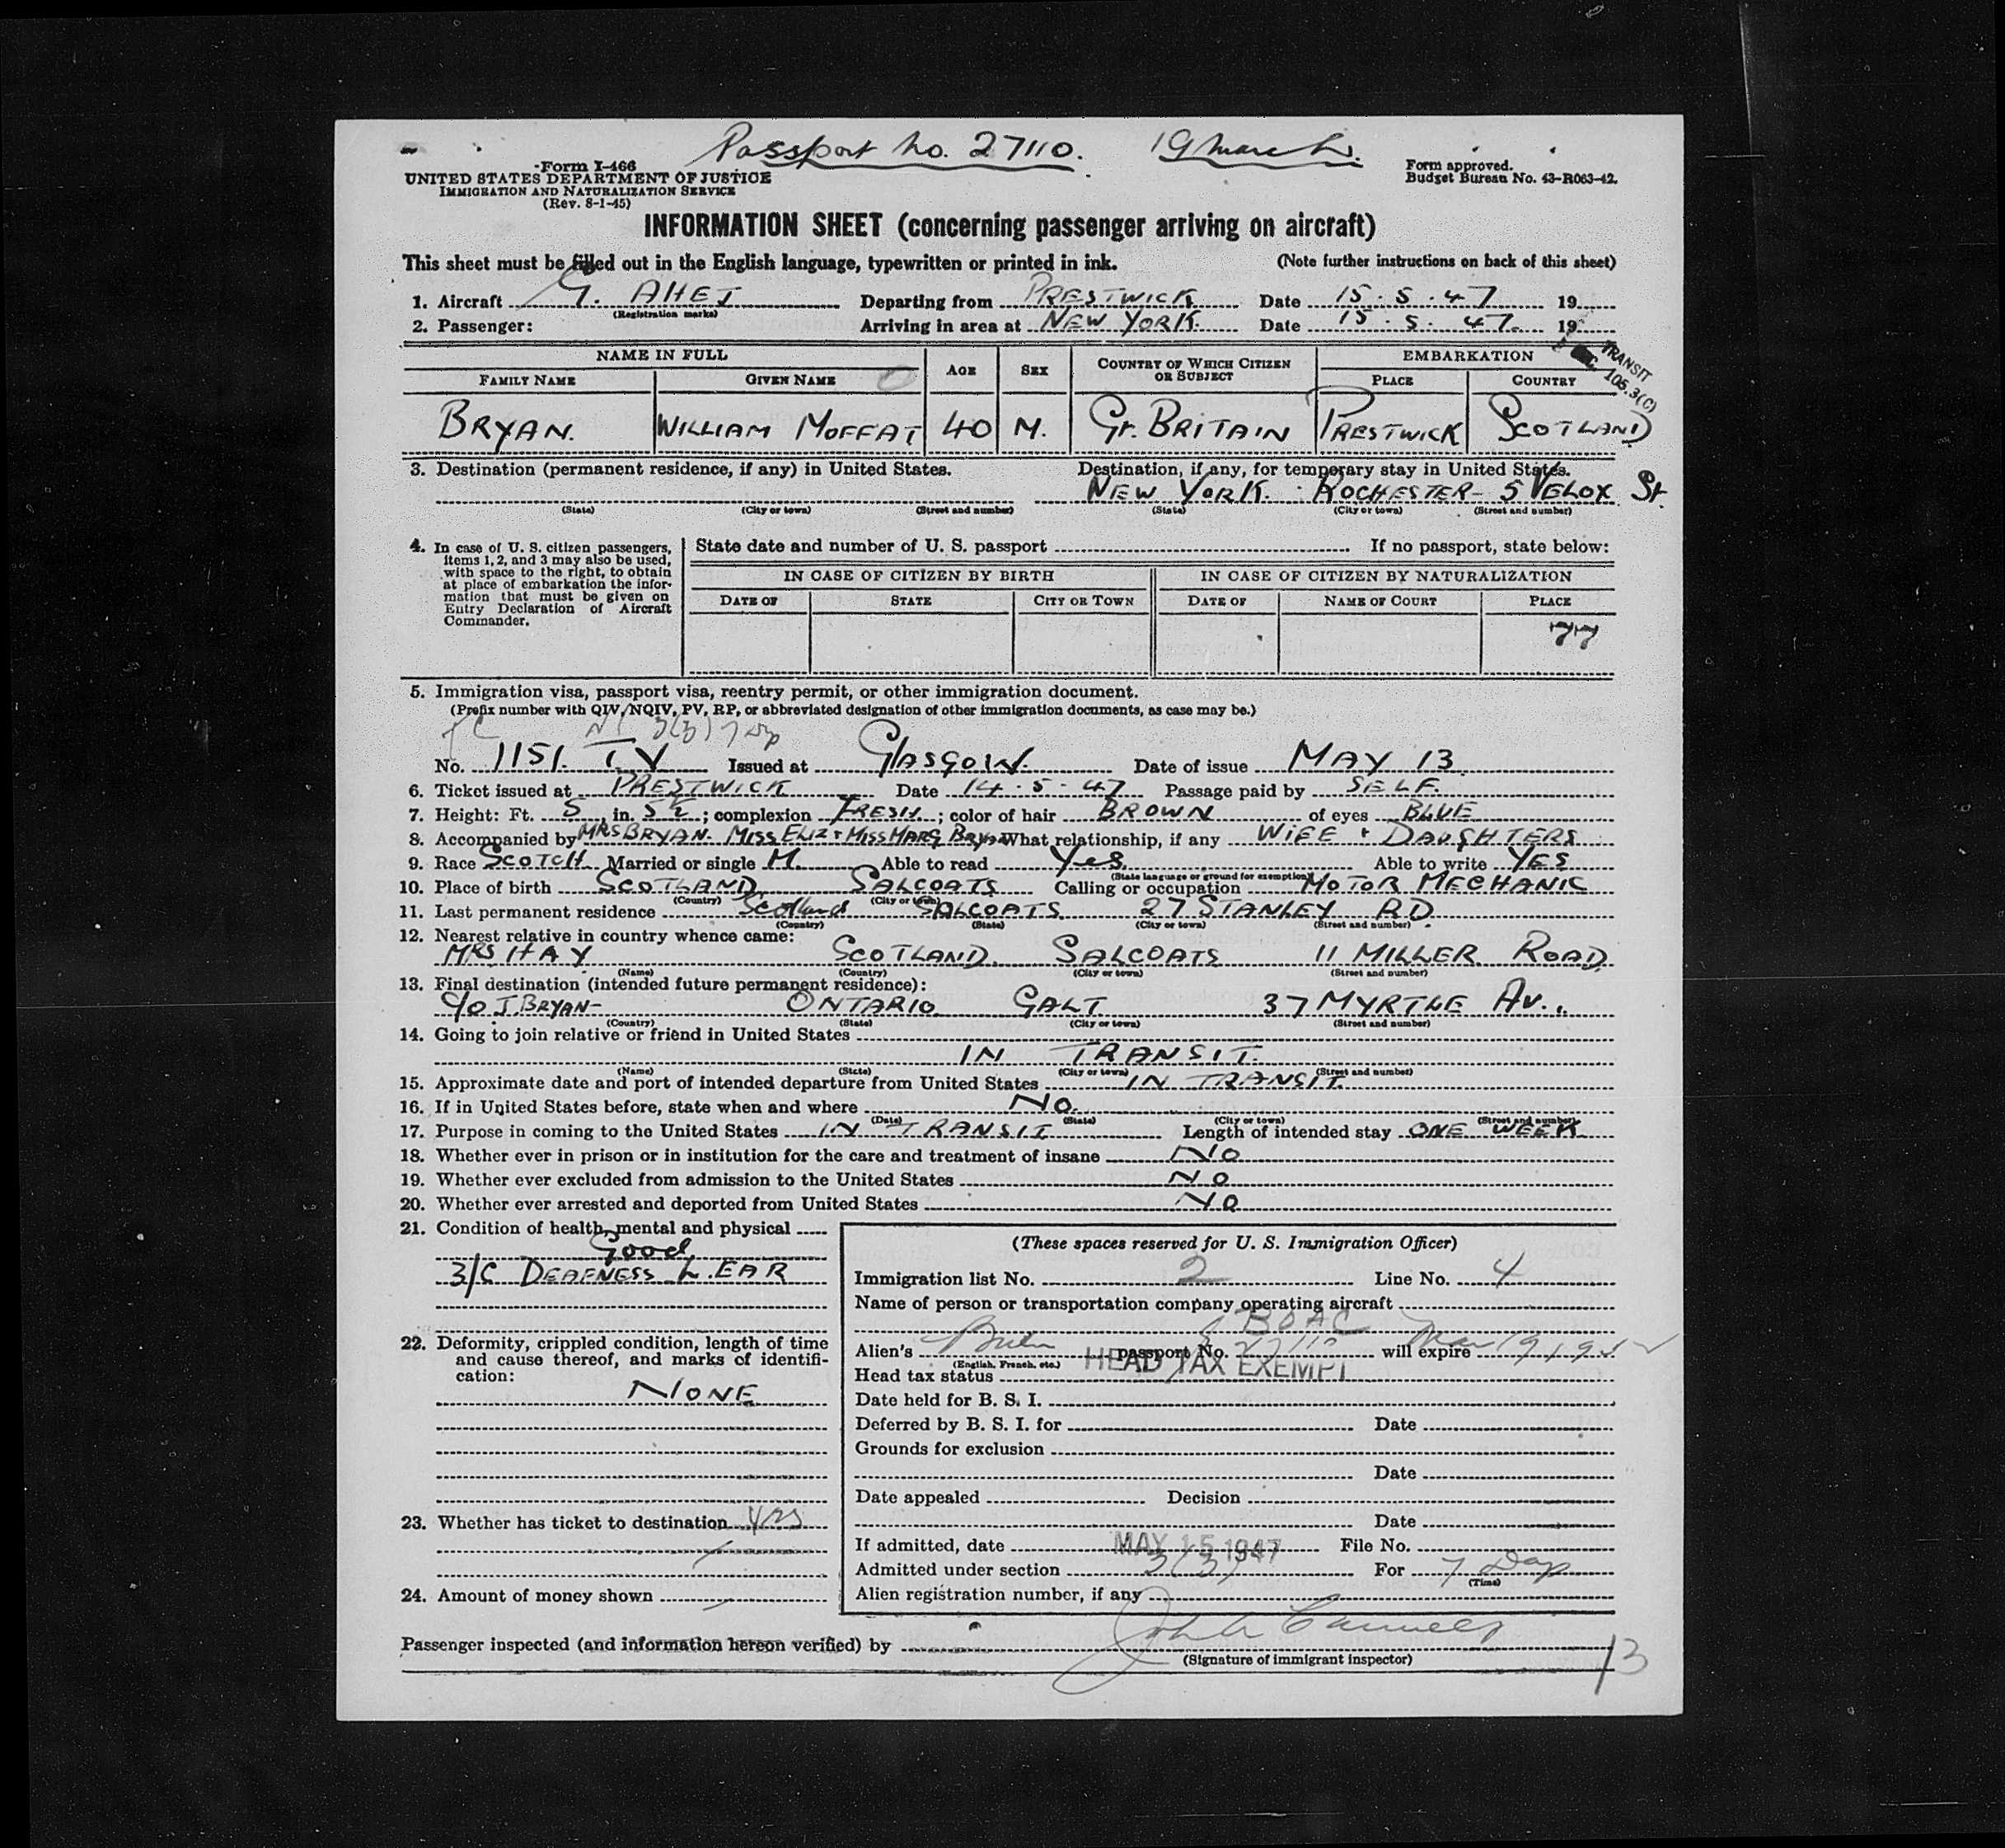 Passport No. 27110. 19 March.
Form I-466
UNITED STATES DEPARTMENT OF JUSTICE
IMMIGRATION AND NATURALIZATION SERVICE
(Rev. 8-1-45)
Form approved.
Budget Bureau No. 43-R063-42.
INFORMATION SHEET (concerning passenger arriving on aircraft)
This sheet must be filled out in the English language, typewritten or printed in ink. (Note further instructions on back of this sheet)
1. Aircraft G. AHEJ Departing from PRESTWICK Date 15.5.47 19
(Registration marks)
2. Passenger: Arriving in area at NEW YORK. Date 15.5.47. 19
TRANSIT
105.3(C)
NAME IN FULL AGE SEX COUNTRY OF WHICH CITIZEN OR SUBJECT EMBARKATION
FAMILY NAME GIVEN NAME PLACE COUNTRY
BRYAN. WILLIAM MOFFAT 40 M. Gt. BRITAIN PRESTWICK SCOTLAND
3. Destination (permanent residence, if any) in United States. Destination, if any, for temporary stay in United States.
NEW YORK. ROCHESTER - 5 VELOX St.
(State) (City or town) (Street and number) (State) (City or town) (Street and number)
4. In case of U. S. citizen passengers, items 1, 2, and 3 may also be used, with space to the right, to obtain at place of embarkation the information that must be given on Entry Declaration of Aircraft Commander.
State date and number of U. S. passport If no passport, state below:
IN CASE OF CITIZEN BY BIRTH IN CASE OF CITIZEN BY NATURALIZATION
DATE OF STATE CITY OR TOWN DATE OF NAME OF COURT PLACE
77
5. Immigration visa, passport visa, reentry permit, or other immigration document.
(Prefix number with QIV, NQIV, PV, RP, or abbreviated designation of other immigration documents, as case may be.)
No. 1151. T.V Issued at GLASGOW. Date of issue MAY 13.
6. Ticket issued at PRESTWICK Date 14.5.47 Passage paid by SELF.
7. Height: Ft. 5 in. 5½; complexion FRESH; color of hair BROWN of eyes BLUE
8. Accompanied by MRS BRYAN. MISS ELIZ + MISS MARG BRYAN What relationship, if any WIFE + DAUGHTERS
9. Race SCOTCH Married or single M. Able to read Yes. Able to write YES
(State language or ground for exemption)
10. Place of birth SCOTLAND SALCOATS Calling or occupation MOTOR MECHANIC
(Country) (City or town)
11. Last permanent residence Scotland SALCOATS 27 STANLEY RD
(Country) (State) (City or town) (Street and number)
12. Nearest relative in country whence came:
MRS HAY SCOTLAND. SALCOATS 11 MILLER ROAD
(Name) (Country) (City or town) (Street and number)
13. Final destination (intended future permanent residence):
c/o J. BRYAN- ONTARIO GALT 37 MYRTLE AV..
(Country) (State) (City or town) (Street and number)
14. Going to join relative or friend in United States
IN TRANSIT.
(Name) (State) (City or town) (Street and number)
15. Approximate date and port of intended departure from United States IN TRANSIT.
16. If in United States before, state when and where No.
(Date) (State) (City or town) (Street and number)
17. Purpose in coming to the United States IN TRANSIT Length of intended stay ONE WEEK
18. Whether ever in prison or in institution for the care and treatment of insane No
19. Whether ever excluded from admission to the United States No
20. Whether ever arrested and deported from United States No
21. Condition of health, mental and physical
Good
3/C DEAFNESS L. EAR
22. Deformity, crippled condition, length of time and cause thereof, and marks of identification:
NONE
23. Whether has ticket to destination yes
24. Amount of money shown
(These spaces reserved for U. S. Immigration Officer)
Immigration list No. 2 Line No. 4
Name of person or transportation company operating aircraft
BOAC
Alien's passport No. 27110 will expire Mar 19, 1952
(English, French, etc.)
HEAD TAX EXEMPT
Head tax status
Date held for B. S. I.
Deferred by B. S. I. for Date
Grounds for exclusion
Date
Date appealed Decision
Date
If admitted, date MAY 15 1947 File No.
Admitted under section 3(3) For 7 Days
(Time)
Alien registration number, if any
Passenger inspected (and information hereon verified) by
(Signature of immigrant inspector)
13